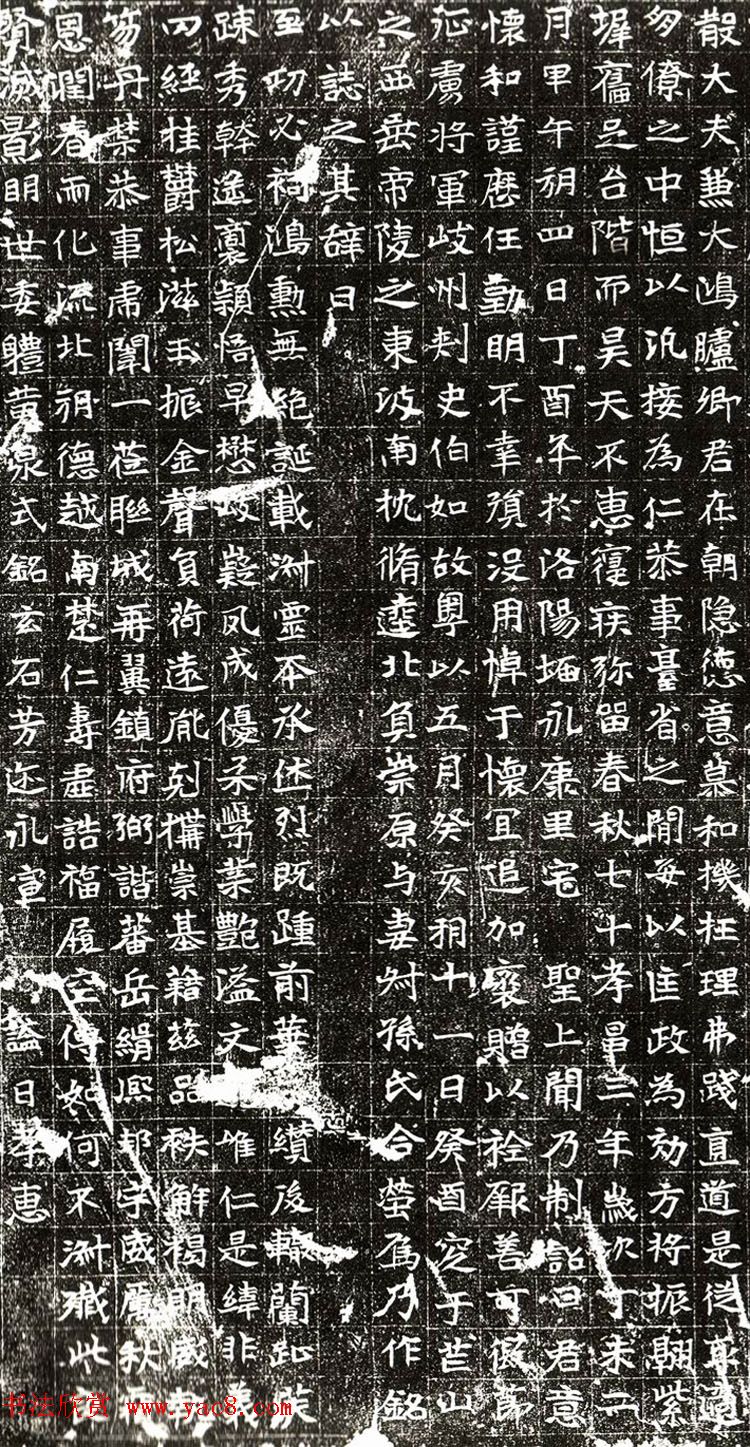 散大夫兼大鴻臚卿君在朝隐德意慕和撲枉理弗踐直道是從
僚之中恒以汎接為仁恭事臺省之閒每以匡政為効方將振翮紫
墀足台階而昊天不惠寢疾弥留春秋七十孝昌三年歲次丁未二
月甲午朔四日丁酉卒於洛陽永康里宅 聖上聞乃制詔曰君意
懷和謹歷任勤明不幸殞没用悼于懷宜追加褒贈以衿厥善可假節
征虜將軍岐州刾史伯如故粵以五月癸亥朔十一日癸酉窆于芒山
之西垂帝陵之東坡南枕脩壟北負崇原与妻孫氏合塋焉乃作銘
以誌之其辭曰
至功必祠鴻勳無絶誕載淵靈丕承休烈既踵前華纘後轍蘭
踈秀幹遥裔穎悟早懋岐嶷夙成優柔學業艷溢文唯仁是緯非
四經桂欝松滋玉振金聲負荷遠胤剋構崇基籍茲品秩解褐明威
笏丹禁恭事帝闈一莅聯城再翼鎮府弼諧蕃岳緝熙邦宇威厲秋
恩潤春而化流北朔德越南楚仁壽虛誥福履空傳如何不淑殲此
賢滅影明世委體黄泉式銘玄石芳迹永宣 謚曰孝惠
书法欣赏 www.yac8.com